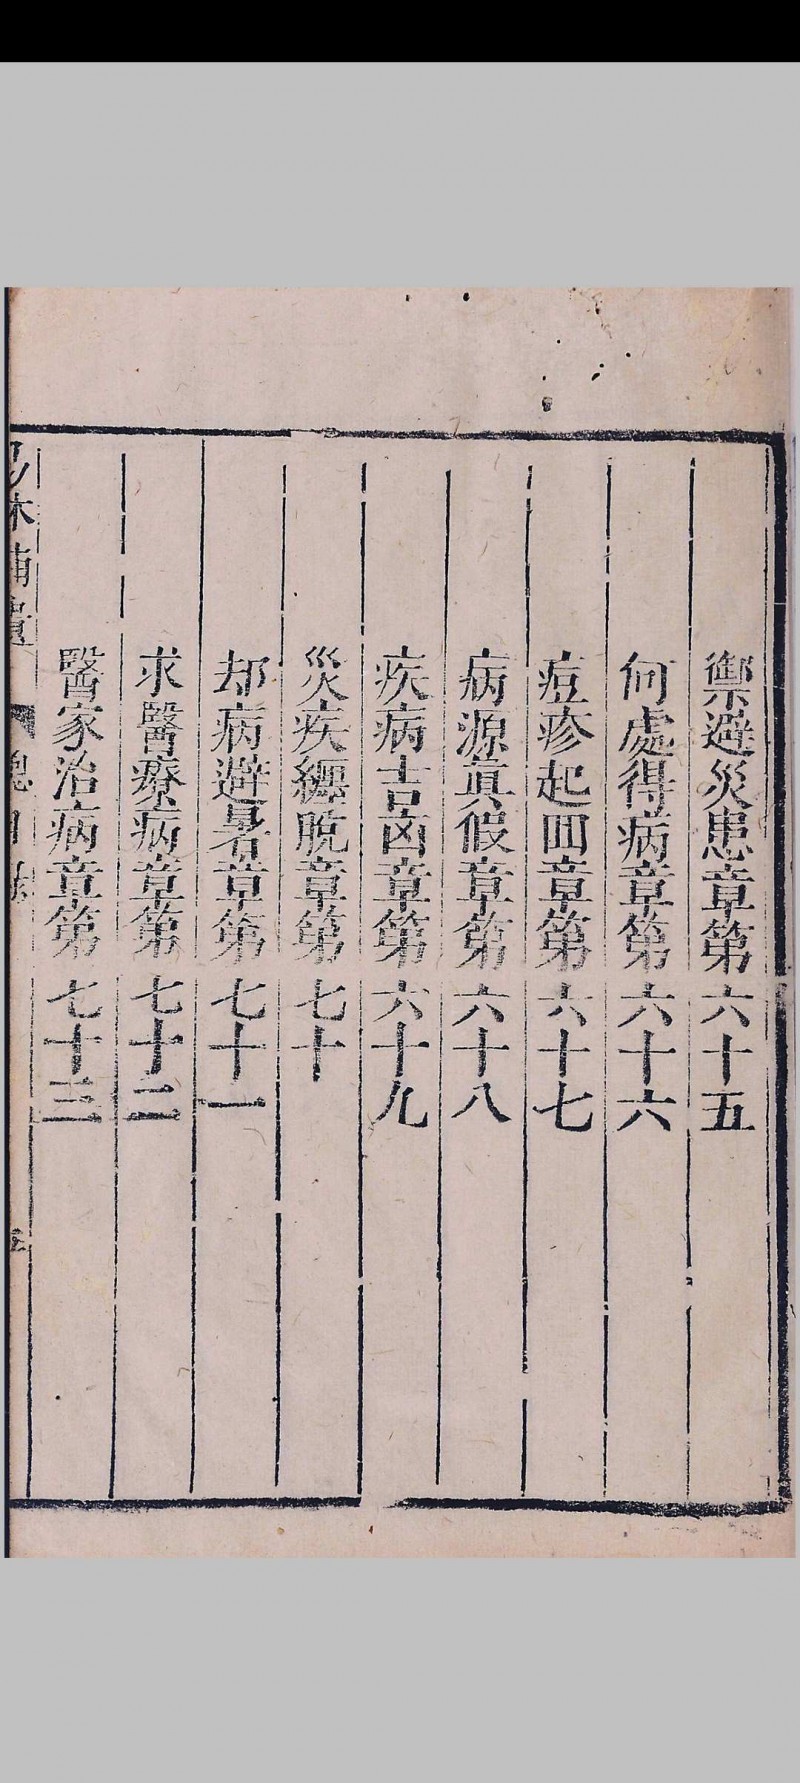 禦避災患章第六十五
何處得病章第六十六
痘疹起回章第六十七
病源真假章第六十八
疾病吉凶章第六十九
災疾纏脫章第七十
却病避暑章第七十一
求醫療病章第七十二
醫家治病章第七十三
易林補遺 總目錄 五